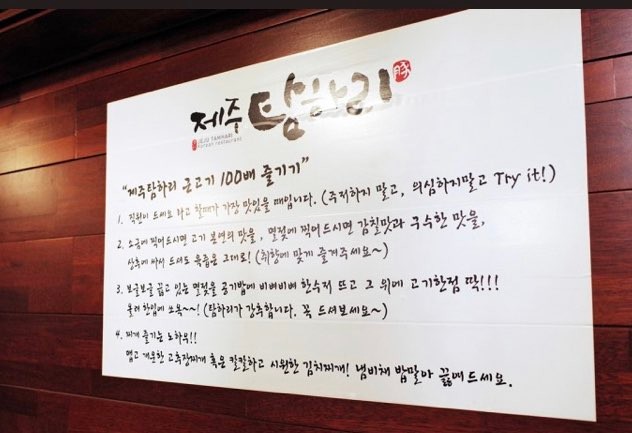 제주 탐하리 豚
JEJU TAMHARI
Korean restaurant
"제주탐하리 근고기 100배 즐기기"
1. 직원이 드세요 라고 할때가 가장 맛있을 때입니다. (주저하지 말고, 의심하지말고 Try it!)
2. 소금에 찍어드시면 고기 본연의 맛을, 멜젓에 찍어드시면 감칠맛과 구수한 맛을,
상추에 싸서 드셔도 육즙은 그대로! (취향에 맞게 즐겨주세요~)
3. 보글보글 끓고 있는 멜젓을 공기밥에 비벼비벼 한수저 뜨고 그 위에 고기한점 딱!!!
올려 한입에 쏘옥~~! (탐하리가 강추합니다. 꼭 드셔보세요~)
4. 찌개 즐기는 노하우!!
맵고 개운한 고추장찌개 혹은 칼칼하고 시원한 김치찌개! 냄비채 밥말아 끓여드세요.